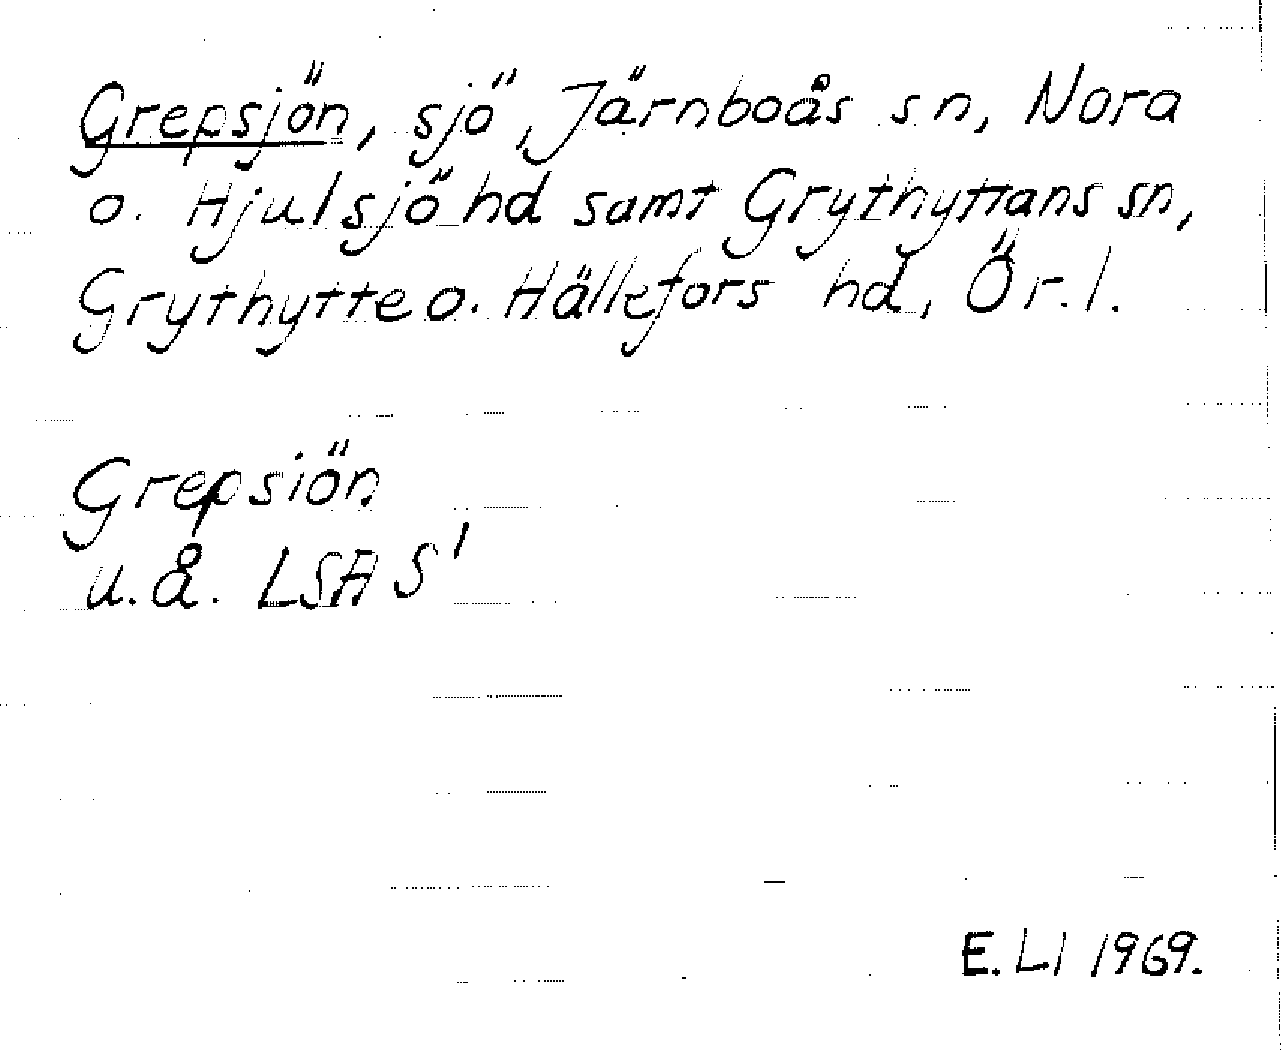 Grepsjön, sjö, Järnboås sn, Nora
o. Hjulsjö hd samt Grythyttans sn,
Grythytte o. Hällefors hd, Ör. l.
Grepsiön
u.å. LSA S1
E. LI 1969.